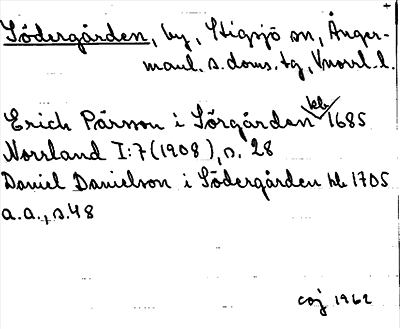 Södergården, by, Stigsjö sn, Ånger-
manl. s. doms. tg, Vnorrl. l.
Erich Pärsson i Sörgården kb 1685
Norrland I:7 (1908), s. 28
Daniel Danielson i Södergården kb 1705
a.a., s. 48
caj 1962